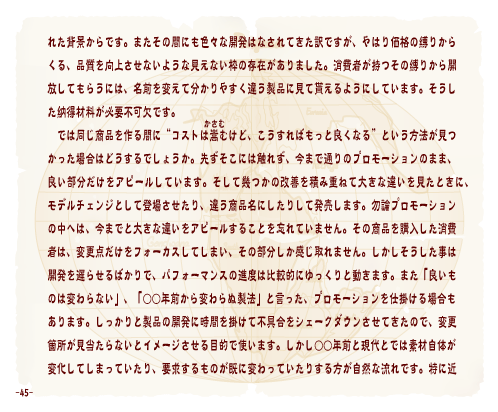 れた背景からです。またその間にも色々な開発はなされてきた訳ですが、やはり価格の縛りから
くる、品質を向上させないような見えない枠の存在がありました。消費者が持つその縛りから開
放してもらうには、名前を変えて分かりやすく違う製品に見て貰えるようにしています。そうし
た納得材料が必要不可欠です。
かさむ
では同じ商品を作る間に“コストは嵩むけど、こうすればもっと良くなる”という方法が見つ
かった場合はどうするでしょうか。先ずそこには触れず、今まで通りのプロモーションのまま、
良い部分だけをアピールしています。そして幾つかの改善を積み重ねて大きな違いを見たときに、
モデルチェンジとして登場させたり、違う商品名にしたりして発売します。勿論プロモーション
の中へは、今までと大きな違いをアピールすることを忘れていません。その商品を購入した消費
者は、変更点だけをフォーカスしてしまい、その部分しか感じ取れません。しかしそうした事は
開発を遅らせるばかりで、パフォーマンスの進度は比較的にゆっくりと動きます。また「良いも
のは変わらない」、「〇〇年前から変わらぬ製法」と言った、プロモーションを仕掛ける場合も
あります。しっかりと製品の開発に時間を掛けて不具合をシェークダウンさせてきたので、変更
箇所が見当たらないとイメージさせる目的で使います。しかし〇〇年前と現代とでは素材自体が
変化してしまっていたり、要求するものが既に変わっていたりする方が自然な流れです。特に近
-45-